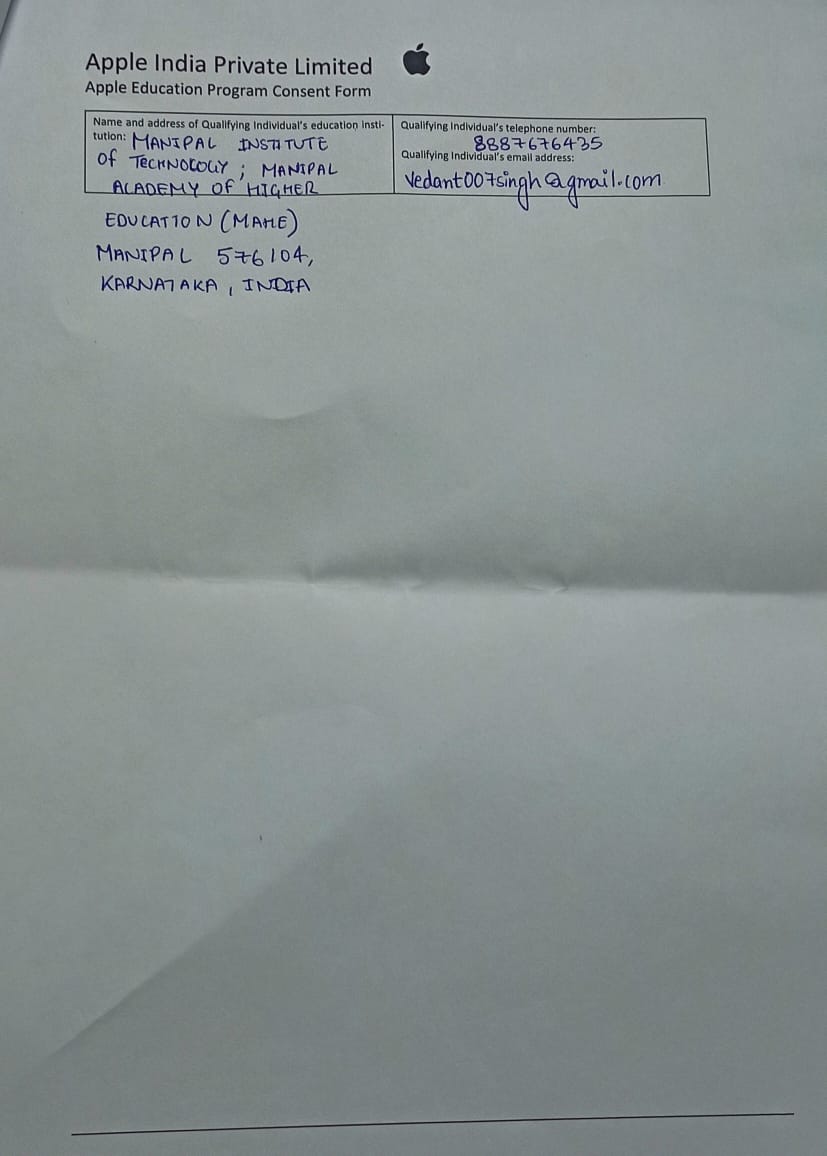 Apple India Private Limited
Apple Education Program Consent Form
Name and address of Qualifying Individual's education insti-
tution: MANIPAL INSTITUTE
Of TECHNOLOGY; MANIPAL
ACADEMY OF HIGHER
EDUCATION (MAHE)
MANIPAL 576104,
KARNATAKA, INDIA
Qualifying Individual's telephone number:
8887676435
Qualifying Individual's email address:
vedant007singh@gmail.com